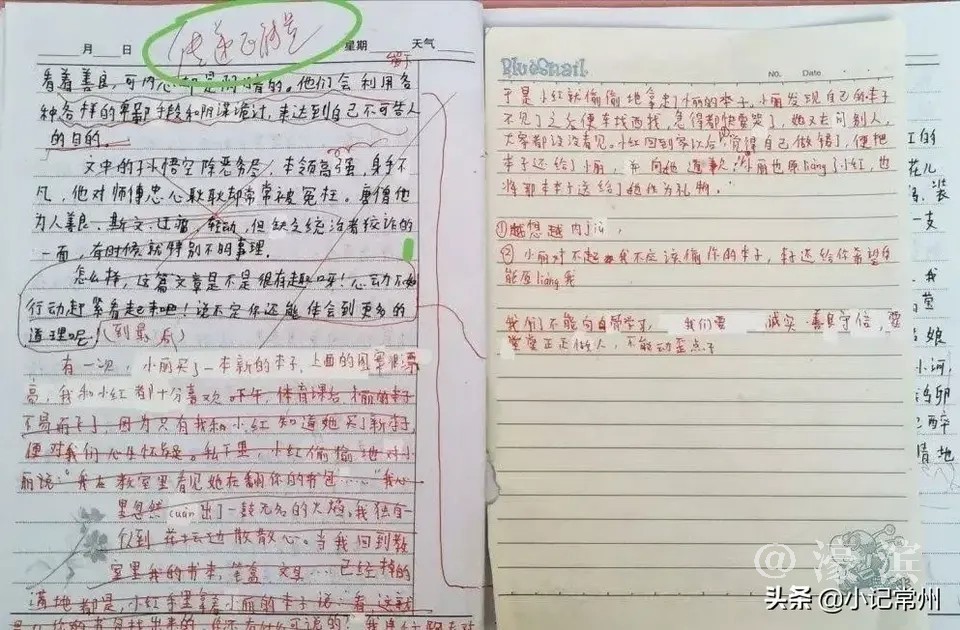 传递正能量
月 日 星期 天气
看着善良，可内心却是阴暗的。他们会利用各
种各样的卑鄙手段和阴谋诡计，来达到自己不可告人
的目的。
文中的孙悟空除恶务尽，本领高强，身手不
凡，他对师傅忠心耿耿却常常被冤枉。唐僧他
为人善良、斯文、过，但缺乏统治者狡诈的
一面，有时候就特别不明事理。
怎么样，这篇文章是不是很有趣呀！心动不如
行动赶紧看起来吧！说不定你还能体会到更多的
道理呢（到最后）
有一次，小丽买了一本新的本子，上面的图案漂
亮，我和小红都十分喜欢。下午，体育课后，小丽的本子
不易而飞了，因为只有我和小红知道她买了新本子，
便对我们心生怀疑。私下里，小红偷偷地对小
丽说："我在教室里看见她在翻你的书包……"我心
里忽然cuān出了一鼓无名的火焰。我独自一
人到花坛边散散心。当我回到教
室里我的书本，笔窝，文具……已经掉的
满地都是，小红手里拿着小丽的本子说："看，这就
BlueSnail
NO. Date
于是小红就偷偷地拿走了小丽的本子，小丽发现自己的本子
不见了之后便东找西找，急得都快要哭了，她又去问别人，
大家都说没看见。小红回到家以后，觉得自己做错了，便把
本子还给了小丽，并向她道事人，小丽也原liàng了小红，也
将那本本子送给了她作为礼物。"
①越想越内jiù，
② 小丽对不起，我不应该偷你的本子，本子还给你希望你
能原liàng我
我们不能向自学习，我们要 诚实、善良守信，要
堂堂正正做人，不能动歪点子
红的
花儿
装
一支
我
娘
小河，
卵
醉
情地
@濠滨
头条 @小记常州